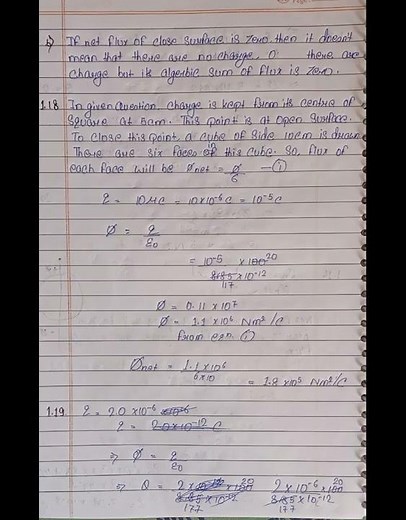 If net flux of close surface is zero then it doesn't
mean that there are no charge, there are
charge but its algebric sum of flux is zero.
1.18 In given question, charge is kept from its centre of
square at 5cm. This point is at open surface.
To close this point, a cube of side 10cm is drawn
There are six faces of this cube. So, flux of
each face will be Φnet = Φ/6 — (i)
q = 10μC = 10×10⁻⁶C = 10⁻⁵C
Φ = q/ε₀
= 10⁻⁵ × 100 20 / 8.85 × 10⁻¹² 177
Φ = 0.11 × 10⁷
Φ = 1.1 × 10⁶ Nm²/C
from eqn. (i)
Φnet = 1.1 × 10⁶ / 6×10 = 1.8 × 10⁵ Nm²/C
1.19 q = 2.0 × 10⁻⁶ × 10⁻⁶
q = 2.0 × 10⁻¹² C
⇒ Φ = q/ε₀
⇒ Q = 2 × 100 20 / 8.85 × 10⁻¹² 177 2 × 10⁻⁶ × 100 20 / 8.85 × 10⁻¹² 177